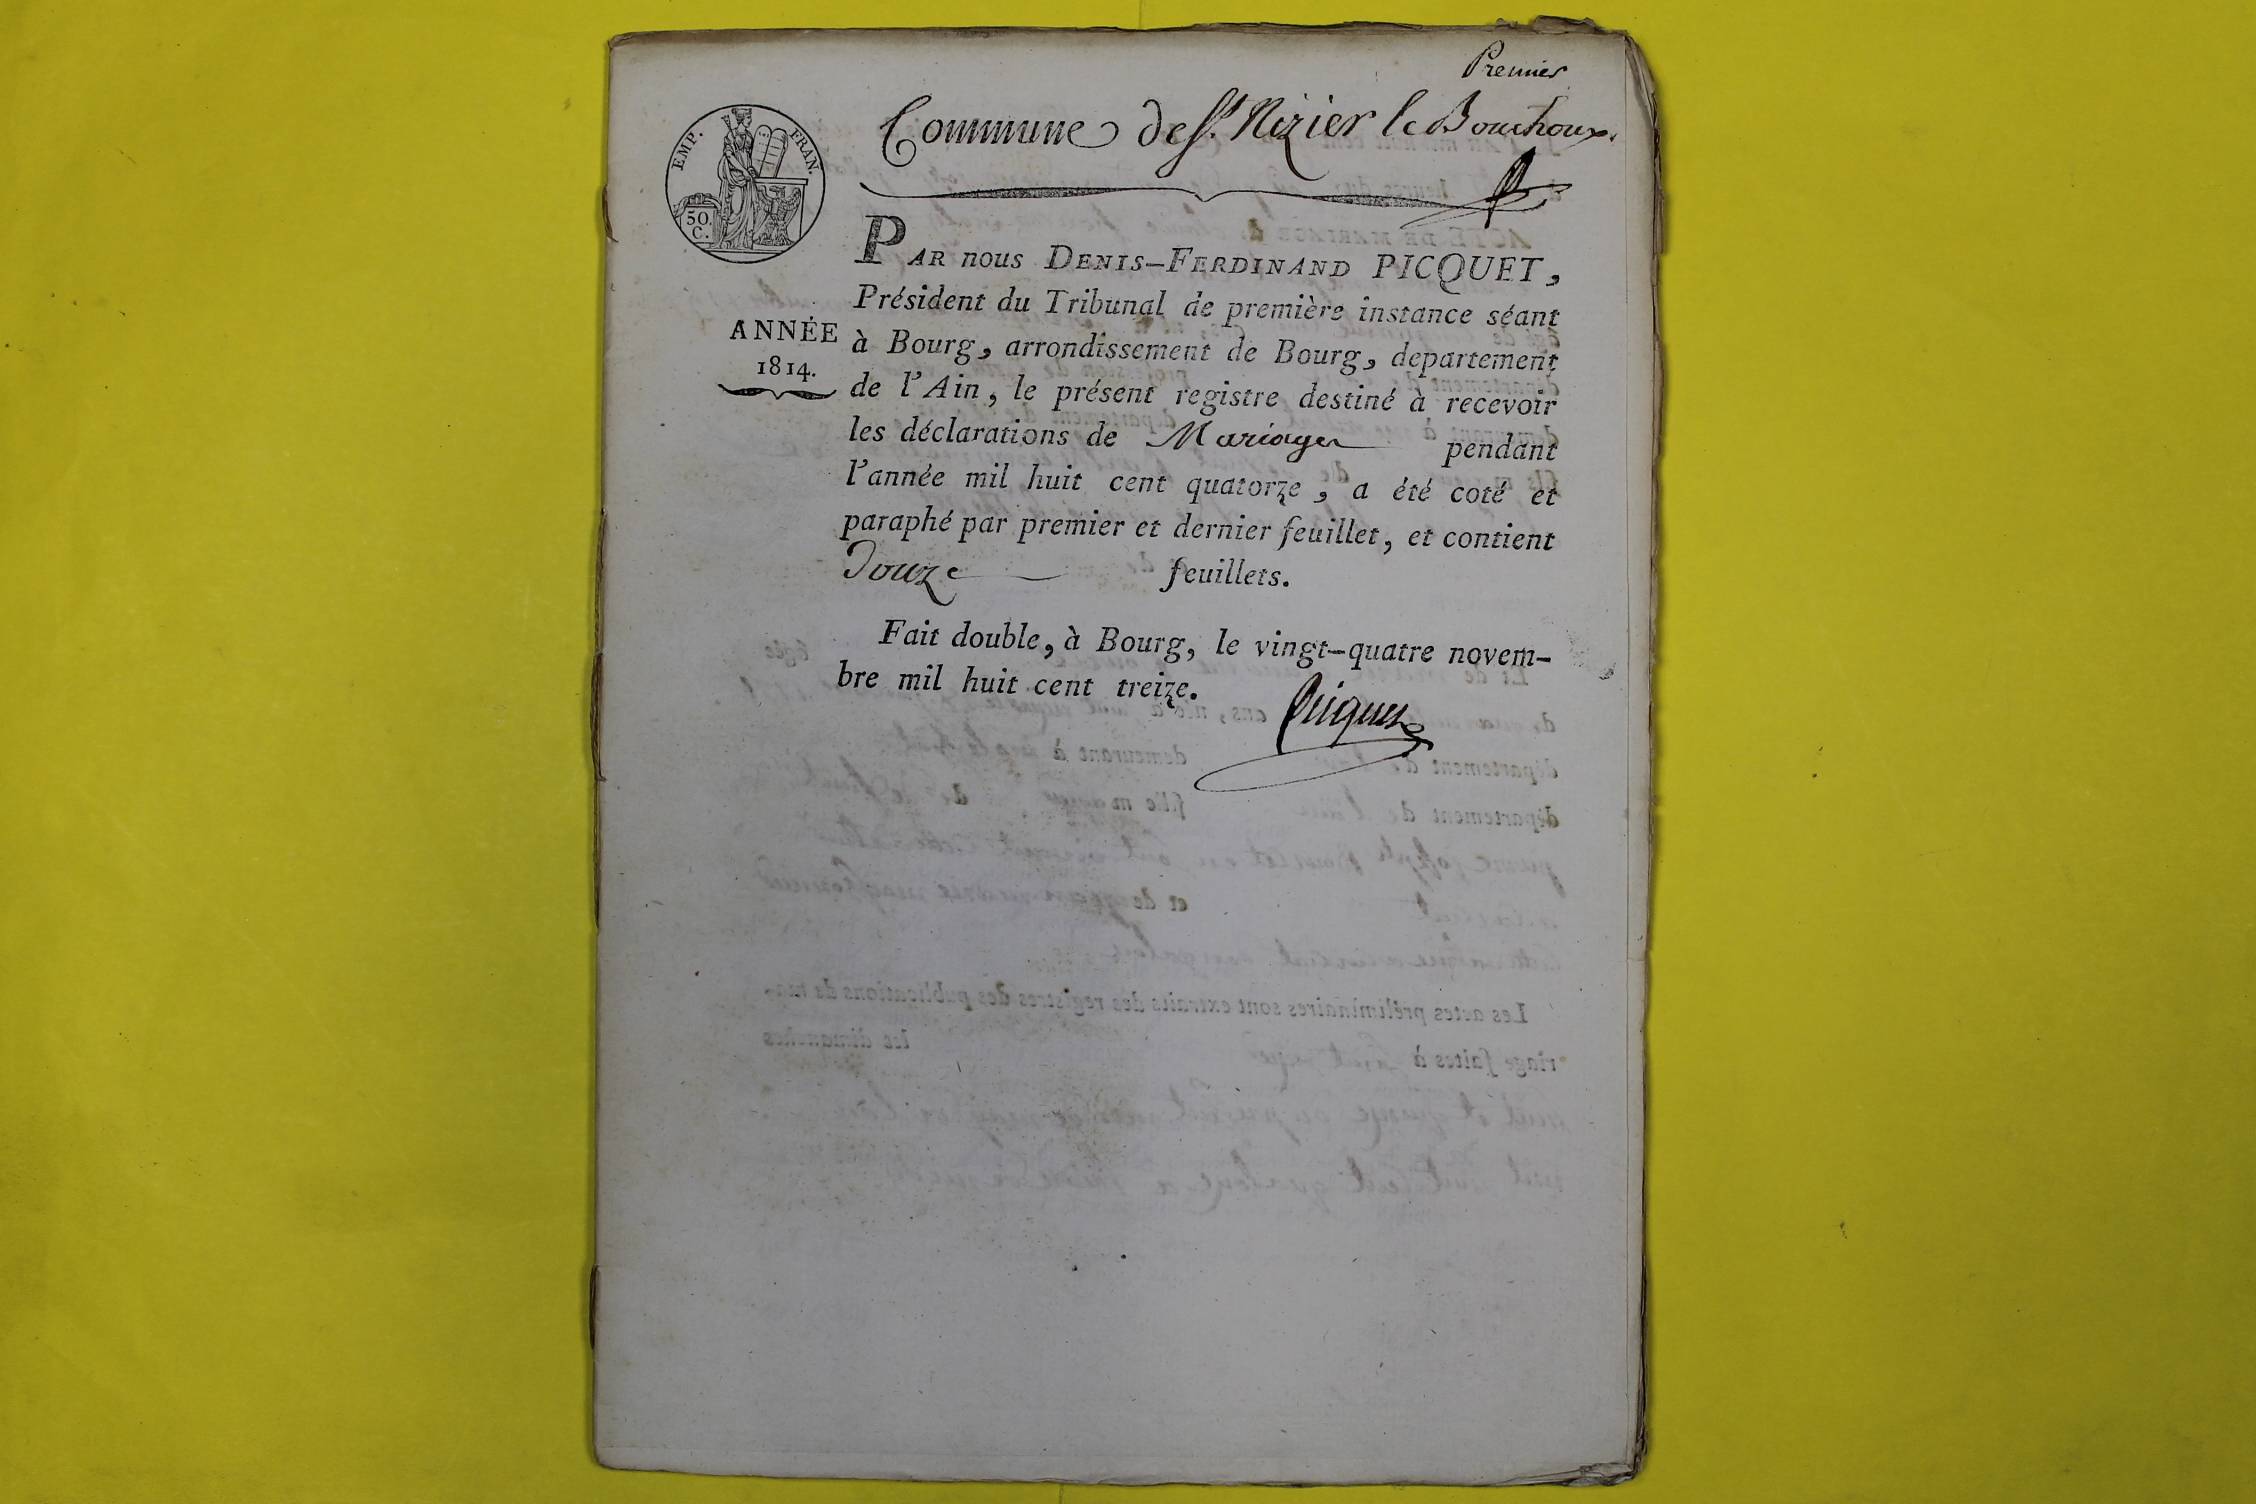 Premier
Commune de St. Nizier le Bouchoux.
EMP. FRAN.
50.
C.
PAR nous DENIS-FERDINAND PICQUET,
Président du Tribunal de première instance séant
ANNÉE
1814.
à Bourg, arrondissement de Bourg, departement
de l'Ain, le présent registre destiné à recevoir
les déclarations de Mariages pendant
l'année mil huit cent quatorze, a été coté et
paraphé par premier et dernier feuillet, et contient
Douze feuillets.
Fait double, à Bourg, le vingt-quatre novem-
bre mil huit cent treize.
Picquet